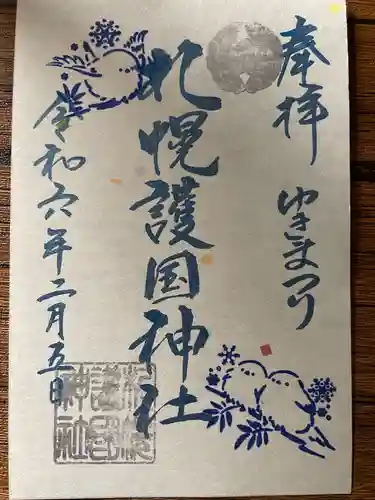 奉拝
ゆきまつり
札幌護国神社
令和六年二月五日
札幌
護國
神社